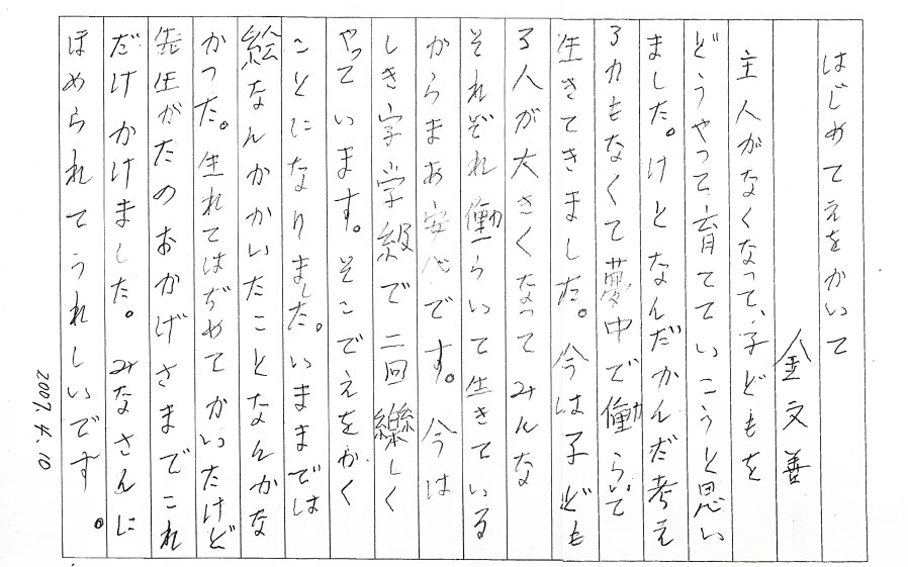 はじめてえをかいて
金文善
主人がなくなって、子どもを
どうやって育てていこうと思い
ました。けとなんだかんだ考え
る力もなくて夢中で働らいて
生きてきました。今は子ども
3人が大きくなってみんな
それぞれ働らいて生きている
からまあ安心です。今は
しき字学級で二回樂しく
やっています。そこでえをかく
ことになりました。いままでは
絵なんかかいたことなんかな
かった。生れてはぢめてかいたけど
先生がたのおかげさまでこれ
だけかけました。みなさんに
ほめられてうれしいです。
2007.4.10